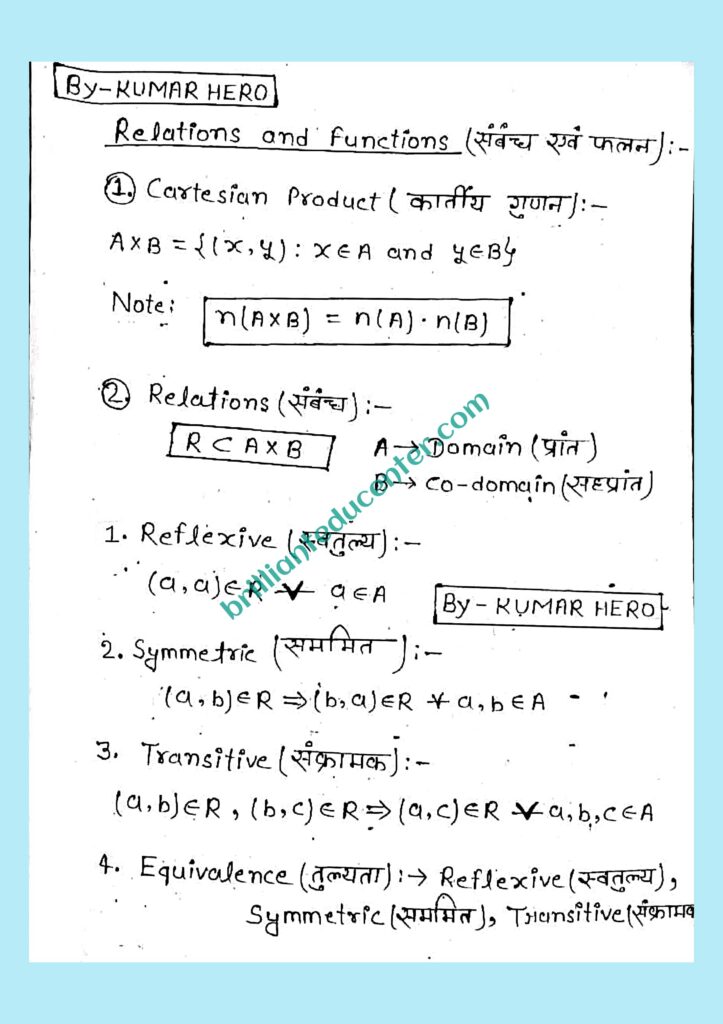 By-KUMAR HERO
Relations and functions (संबंध एवं फलन) :-
①. Cartesian Product ( कार्तीय गुणन) :-
A×B = {(x,y) : x∈A and y∈B}
Note: n(A×B) = n(A)·n(B)
② Relations (संबंध) :-
R ⊂ A×B A → Domain (प्रांत)
B → co-domain (सहप्रांत)
1. Reflexive (स्वतुल्य) :-
(a,a)∈R ∀ a∈A
By - KUMAR HERO
2. Symmetric (सममित) :-
(a,b)∈R ⇒ (b,a)∈R ∀ a,b∈A
3. Transitive (संक्रामक) :-
(a,b)∈R , (b,c)∈R ⇒ (a,c)∈R ∀ a,b,c∈A
4. Equivalence (तुल्यता) :→ Reflexive (स्वतुल्य),
Symmetric (सममित), Transitive (संक्रामक
brillianteducenter.com